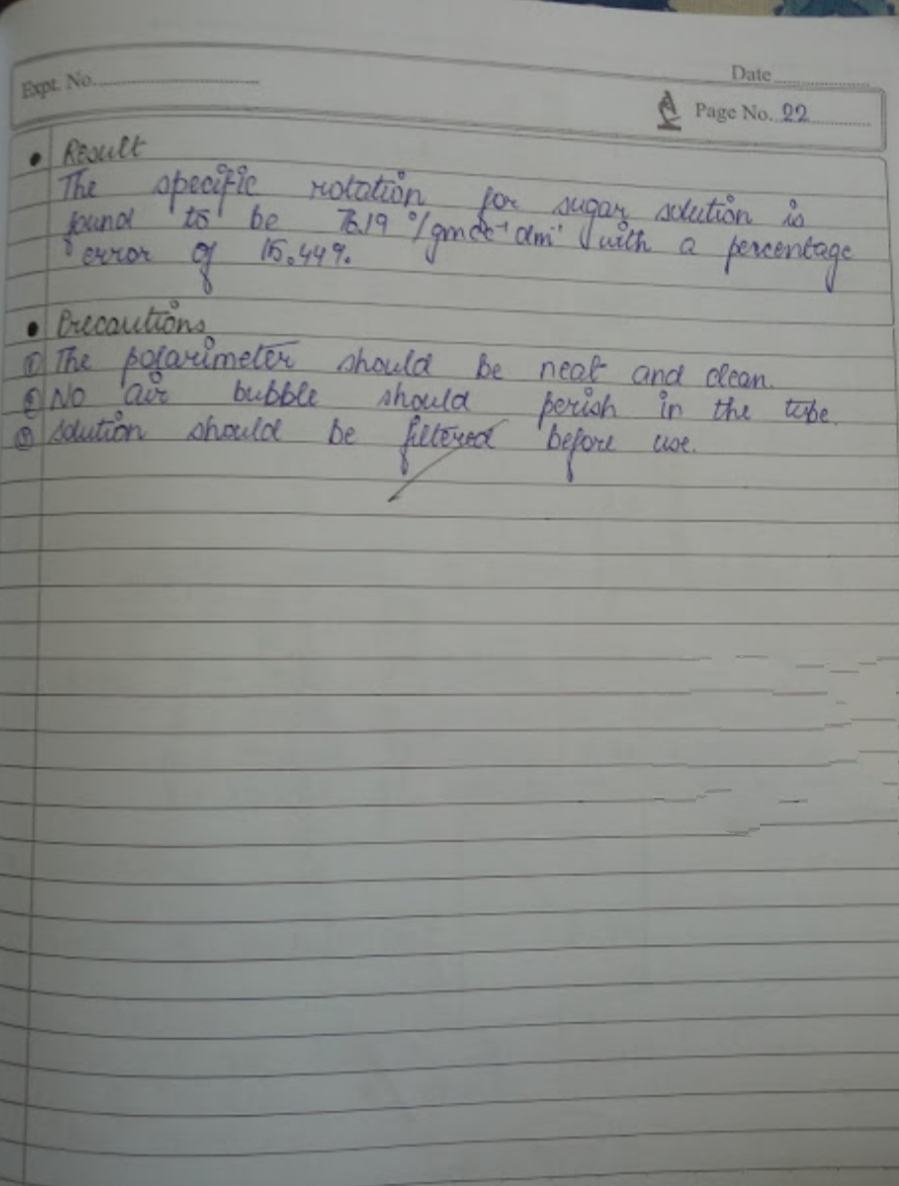 Expt. No.
Date
Page No. 22
• Result
The specific rotation for sugar solution is
found to be 76.19 °/gmcc⁻¹ dm⁻¹ with a percentage
error of 15.44%.
• Precautions
① The polarimeter should be neat and clean.
② No air bubble should perish in the tube.
③ Solution should be filtered before use.